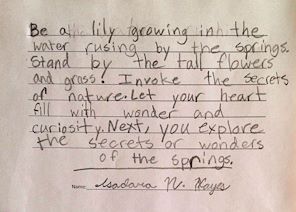 Be a lily growing in the
water rusing by the springs.
Stand by the tall flowers
and grass. Invoke the secrets
of nature. Let your heart
fill with wonder and
curiosity. Next, you explore
the secrets or wonders
of the springs.
Name: Isadara N. Hayes